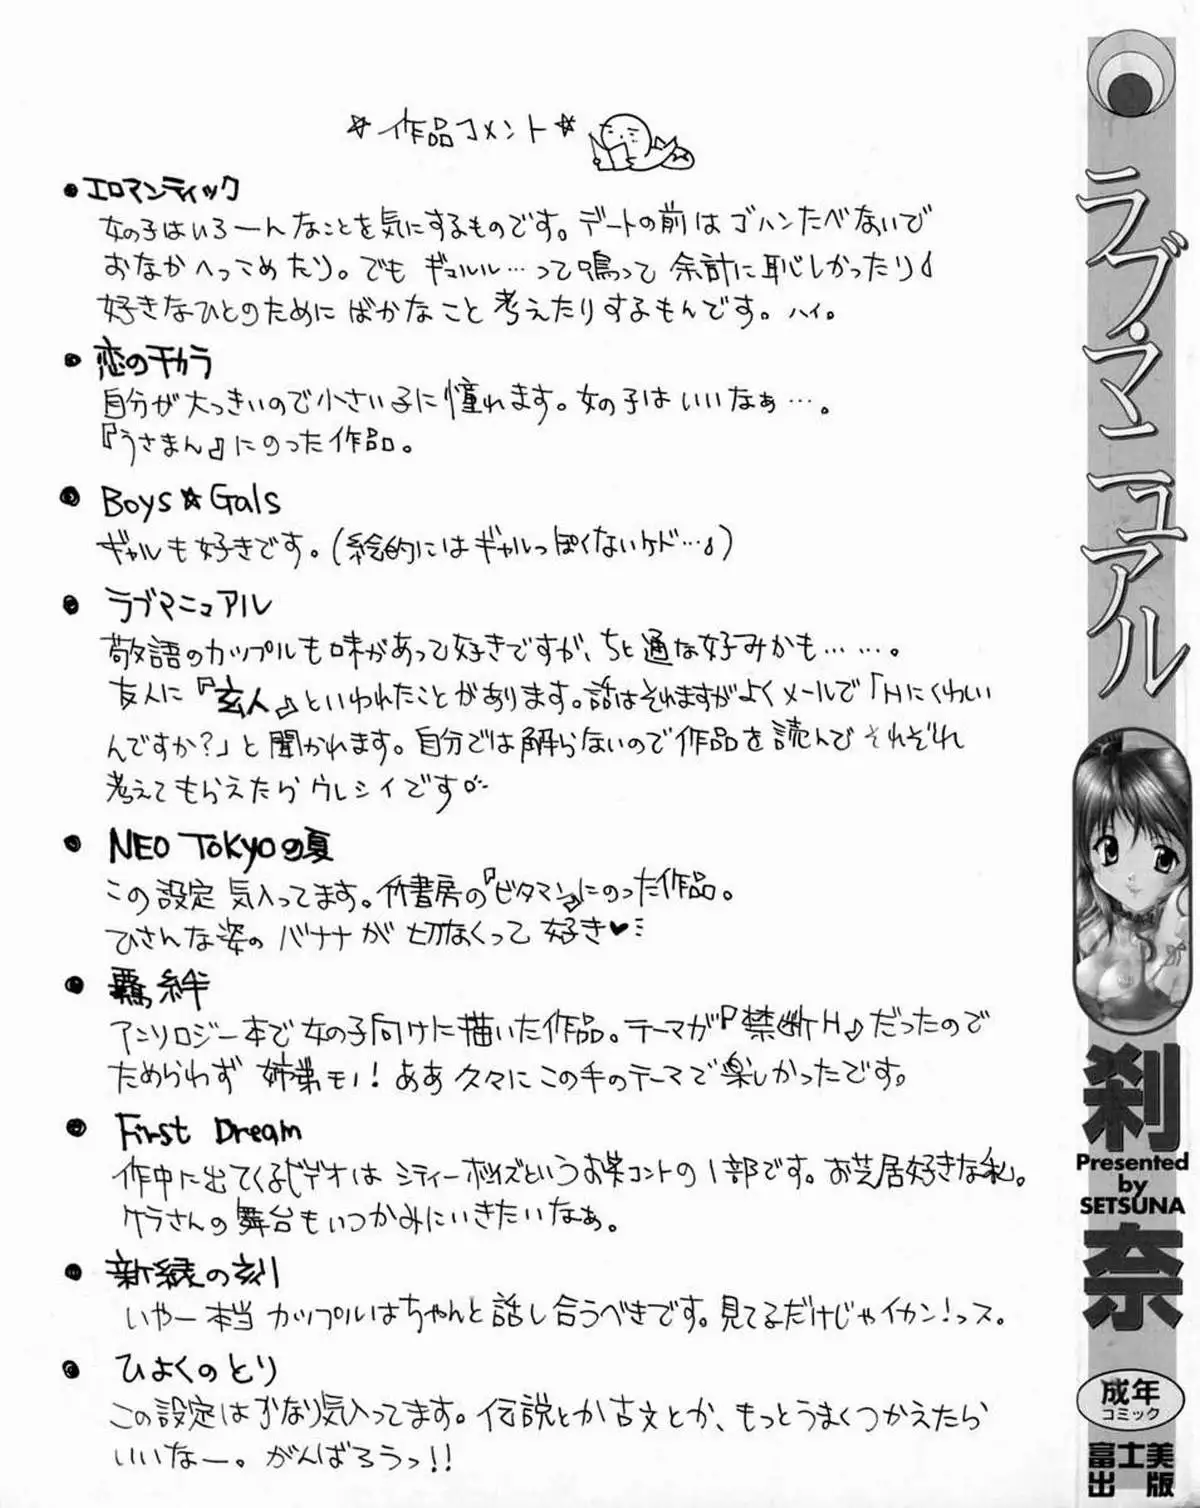 ☆作品コメント☆
●エロマンティック
女の子はいろーんなことを気にするものです。デートの前はゴハンたべないで
おなかへっこめたり。でもギュルル…って鳴って余計に恥しかったり
好きなひとのためにばかなこと考えたりするもんです。ハイ。
●恋のチカラ
自分が大っきいので小さい子に憧れます。女の子はいいなぁ…。
『うさまん』にのった作品。
●Boys☆Gals
ギャルも好きです。(絵的にはギャルっぽくないケド…)
●ラブマニュアル
敬語のカップルも味があって好きですが、ちと通な好みかも……。
友人に『玄人』といわれたことがあります。話はそれますがよくメールで「Hにくわしい
んですか?」と聞かれます。自分では解らないので作品を読んでそれぞれ
考えてもらえたらウレシイです
●NEO TOKYOの夏
この設定気入ってます。竹書房の『ビタマン』にのった作品。
ひさんな姿のバナナが切なくって好き♥
●羈絆
アンソロジー本で女の子向けに描いた作品。テーマが『禁断H』だったので
ためらわず姉弟モノ!ああ久々にこの手のテーマで楽しかったです。
●First Dream
作中に出てくるビデオはシティーボイズというお笑コントの1部です。お芝居好きな私。
ケラさんの舞台もいつかみにいきたいなぁ。
●新緑の刻
いやー本当カップルはちゃんと話し合うべきです。見てるだけじゃイカン!っス。
●ひよくのとり
この設定はかなり気入ってます。伝説とか古文とか、もっとうまくつかえたら
いいなー。がんばろうっ!!
ラブ・マニュアル
刹
Presented
by
SETSUNA
奈
成年
コミック
富士美
出版